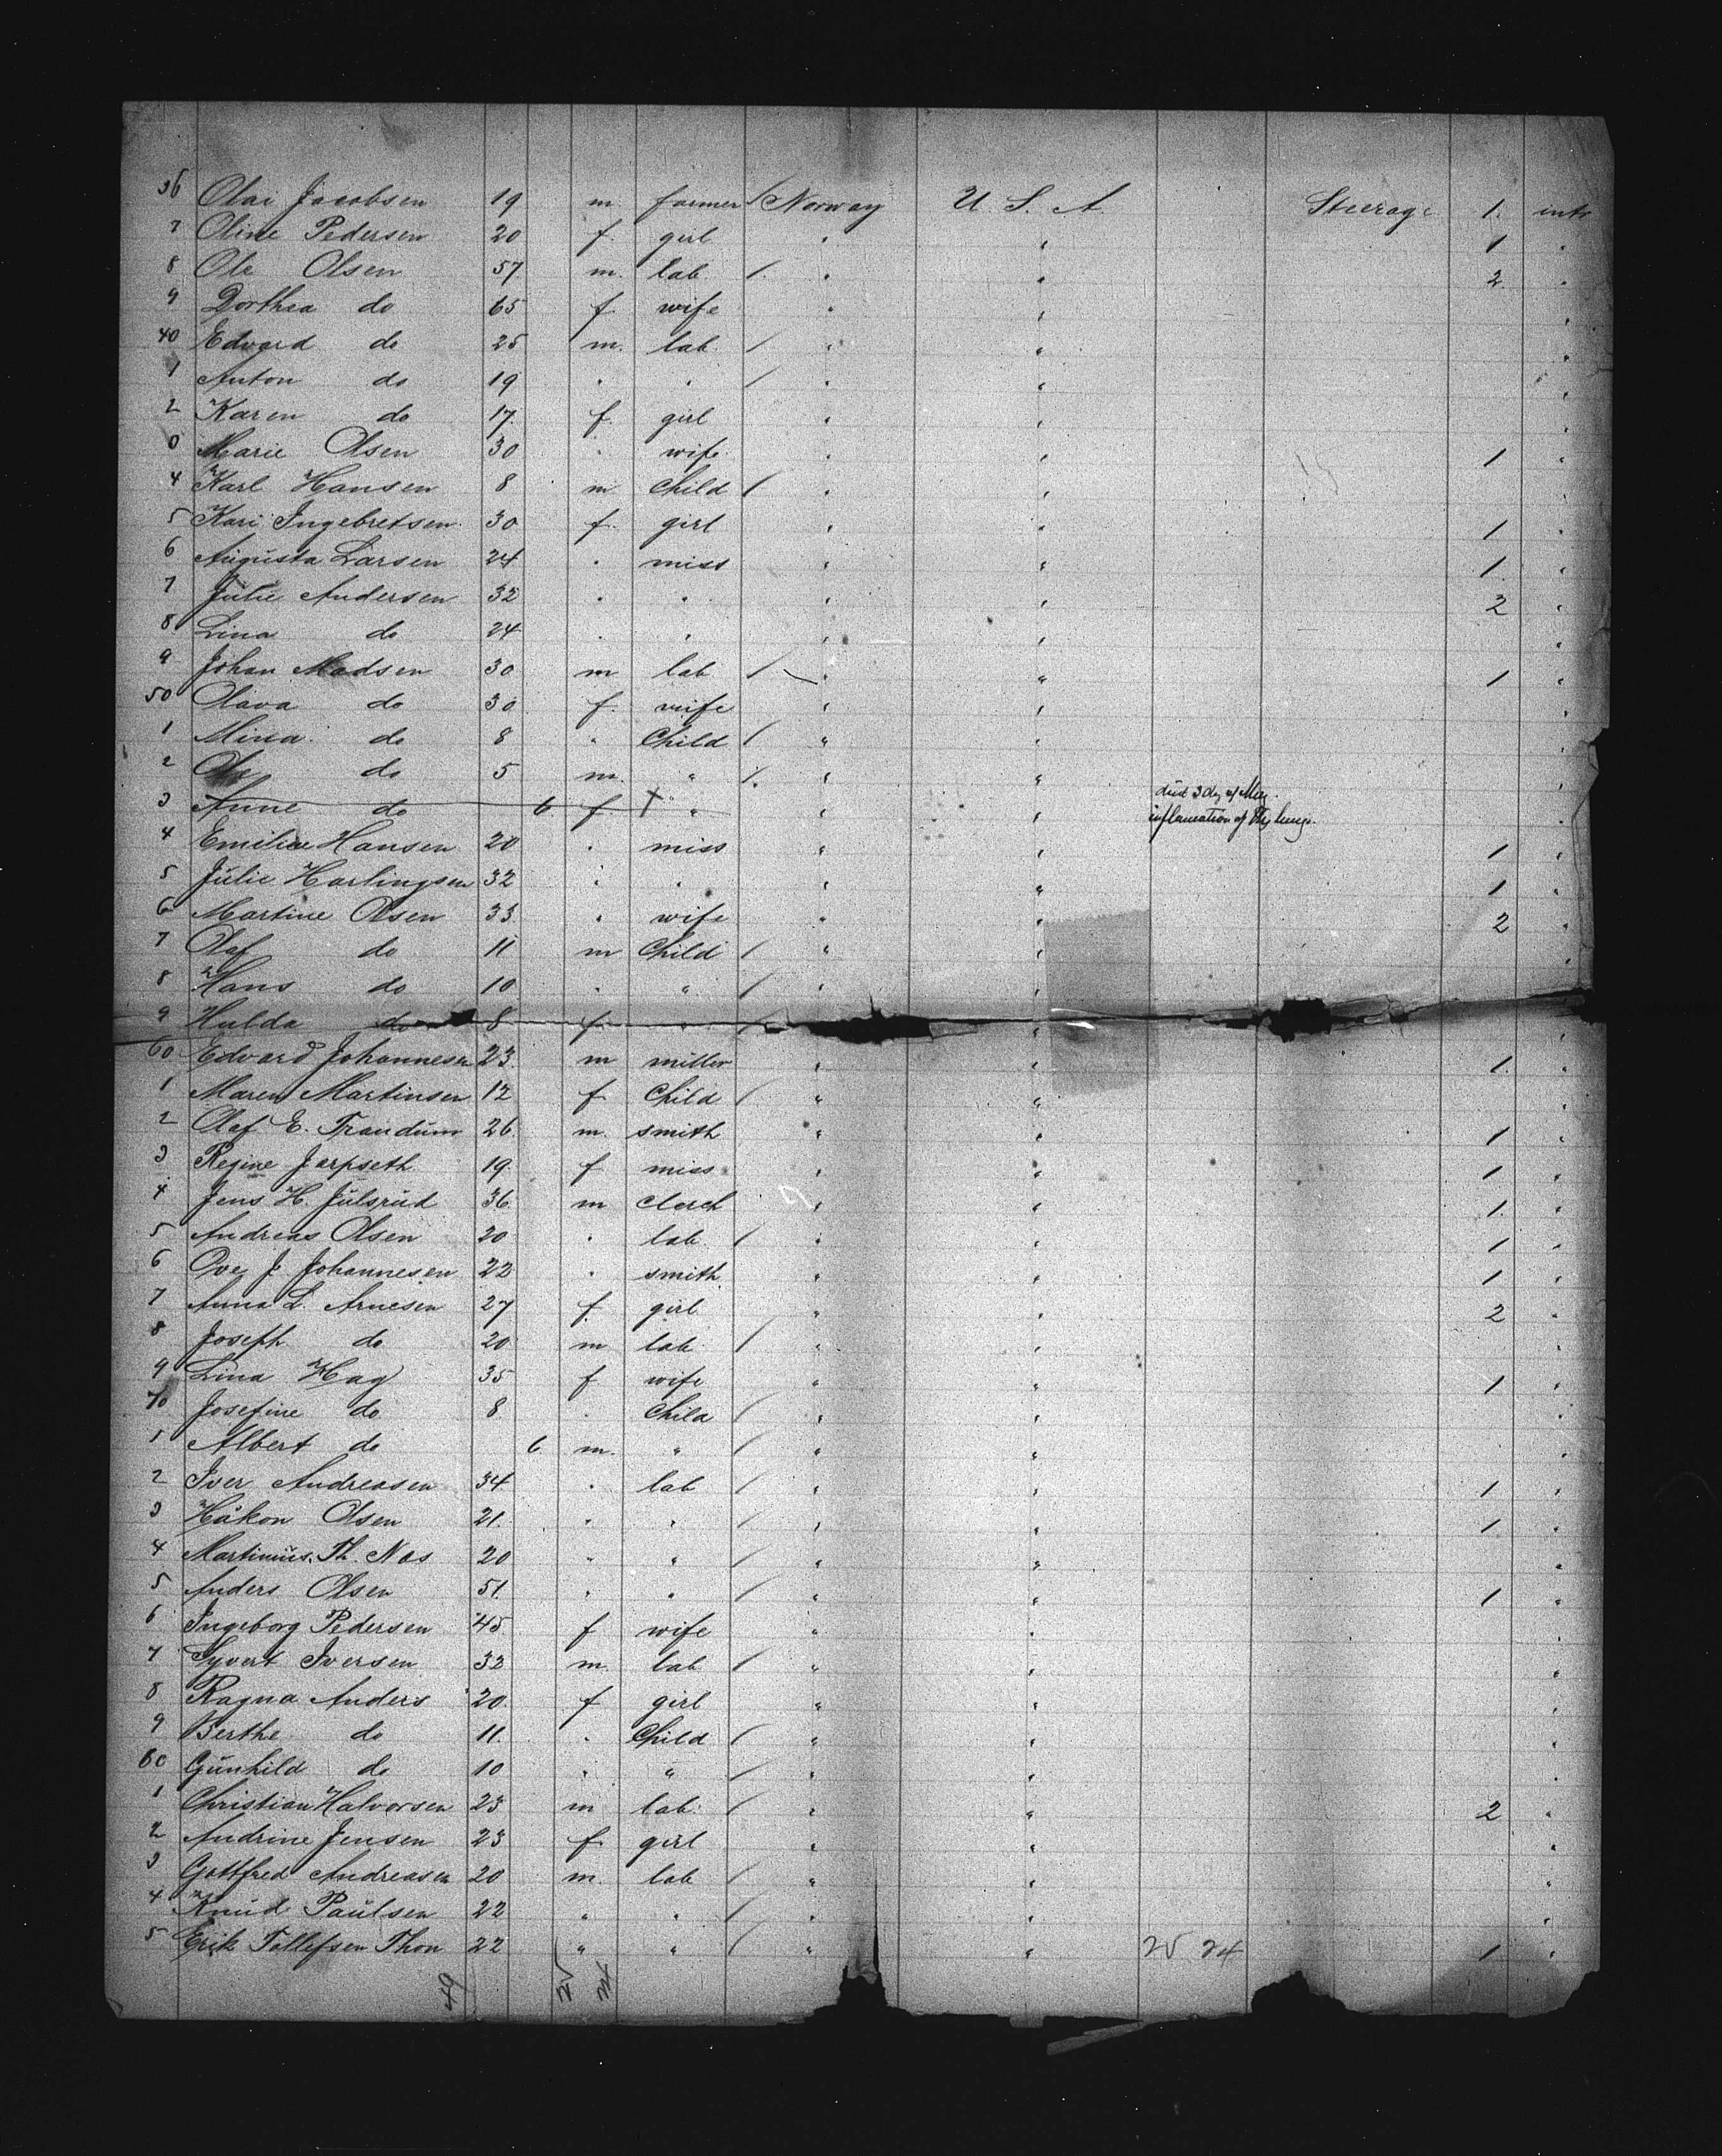 36 Olai Jacobsen 19 m. farmer / Norway U. S. A. Steerage 1. intr
7 Oline Pedersen 20 f. girl " " 1 "
8 Ole Olsen 57 m. lab / " " 2 "
9 Dorthea do 65 f. wife " " "
40 Edvard do 25 m. lab. / " " "
1 Anton do 19 " " / " " "
2 Karen do 17. f. girl " " "
3 Marie Olsen 30 " wife " " 1 "
4 Karl Hansen 8 m Child / " " "
5 Kari Ingebretsen 30 f. girl " " 1 "
6 Augusta Larsen 24 " miss " " 1. "
7 Julie Andersen 32 " " " " 2 "
8 Lina do 24 " " " " "
9 Johan Madsen 30 m lab / " " 1 "
50 Olava do 30 f. wife " " "
1 Mina do 8 " Child / " " "
2 Ole do 5 m. " / " " "
3 Anne do 6 f X " " " died 3 day of May. "
inflamation of the lungs.
4 Emilie Hansen 20 " miss " " 1 "
5 Julie Harlingsen 32 " " " " 1 "
6 Martine Olsen 33. " wife " " 2 "
7 Olaf do 11 m Child / " " "
8 Hans do 10 " " / " " "
9 Hulda do 8 f " / " "
60 Edvard Johannesen 23. m miller " " 1. "
1 Maren Martinsen 12 f Child / " " "
2 Olaf E. Trandum 26 m. smith " " 1 "
3 Regine Jarpseth 19 f miss " " 1 "
4 Jens H. Julsrud 36 m clerch " " 1. "
5 Andreas Olsen 20 " lab. / " " 1 "
6 Ove J Johannesen 22 " smith " " 1 "
7 Anna L. Arnesen 27 f. girl " " 2 "
8 Joseph do 20 m lab. / " "
9 Lina Hag 35 f wife " " 1 "
70 Josefine do 8 " Child / " " "
1 Albert do 6 m. " / " " "
2 Iver Andreasen 34 " lab / " " 1 "
3 Håkon Olsen 21. " " / " " 1 "
4 Martinus. Th. Nas 20 " " / " " "
5 Anders Olsen 51. " " / " " 1 "
6 Ingeborg Pedersen 45 f wife " " "
7 Syvert Iversen 32 m. lab / " " "
8 Ragna Anders 20. f girl " " "
9 Berthe do 11. " Child / " " "
80 Gunhild do 10 " " / " " "
1 Christian Halvorsen 23 m lab. / " " 2 "
2 Andrine Jensen 23 f girl " " "
3 Gottfred Andreasen 20 m. lab / " " "
4 Knud Paulsen 22 " " / " " "
5 Erik Tollefsen Thon 22 " " / " " 25 24 1 "
49 25 24